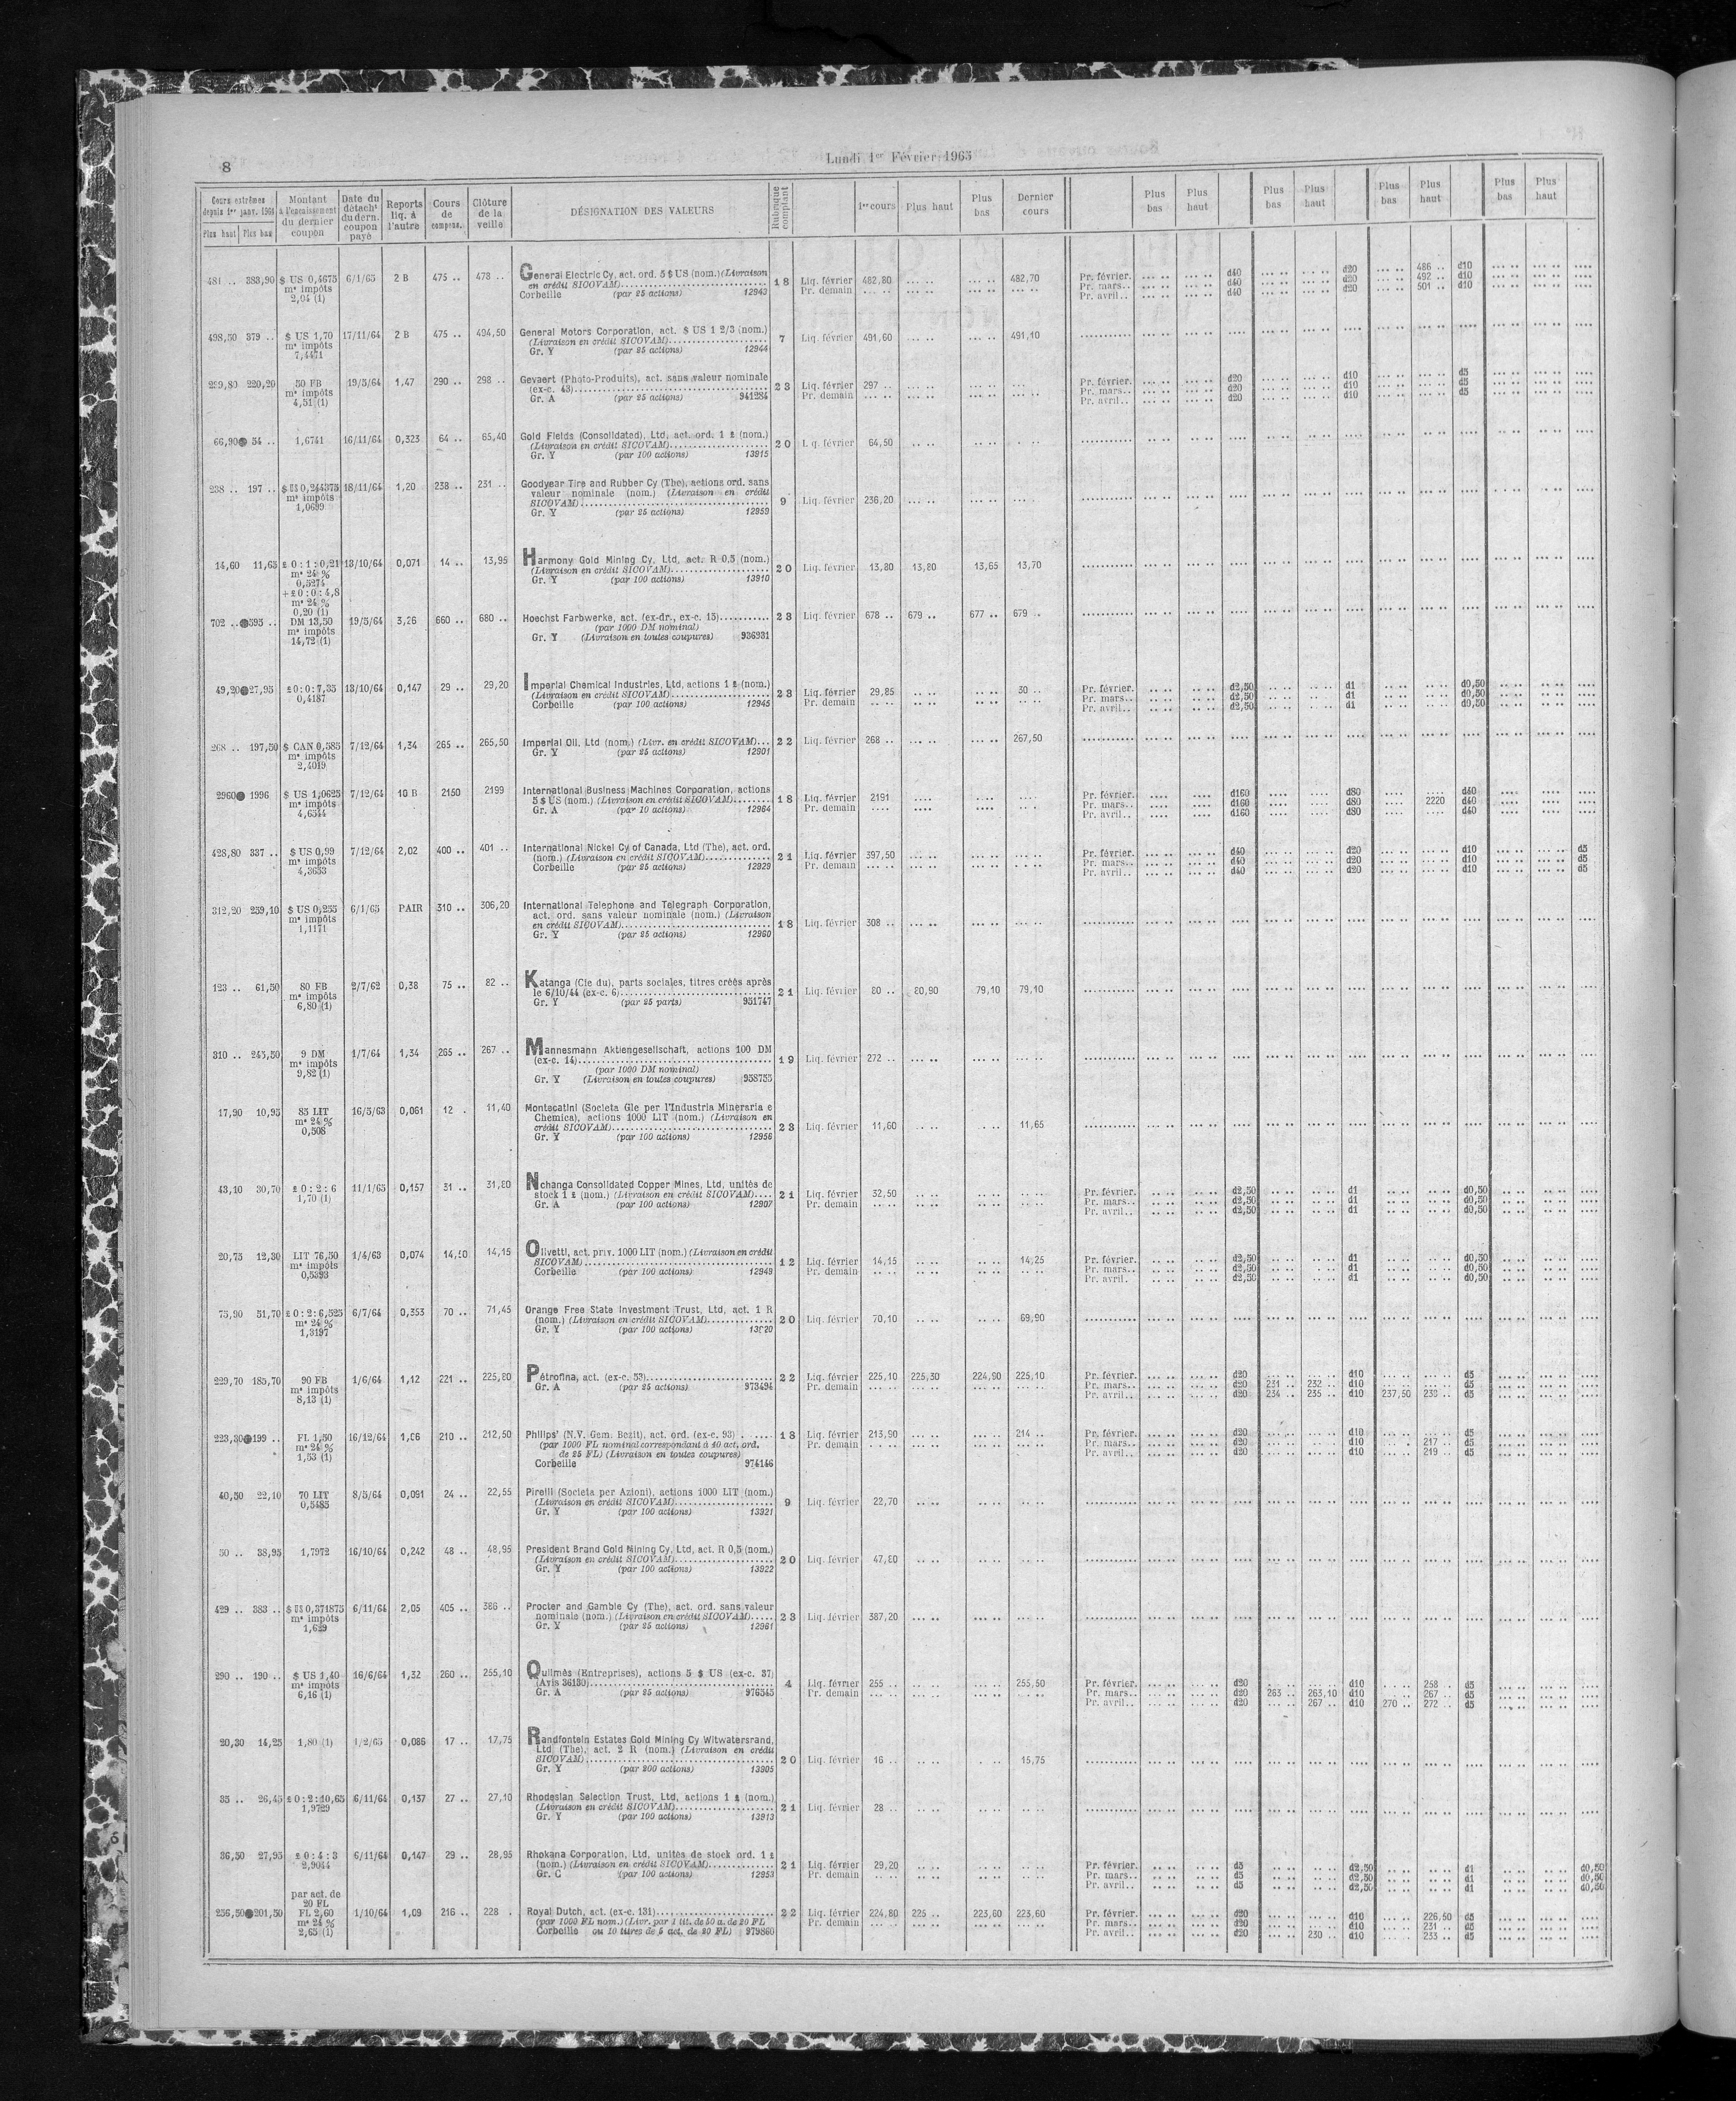 8
Lundi 1er Février 1965
Cours extrêmes depuis 1er janv. 1964
Plus haut Plus bas
Montant à l'encaissement du dernier coupon
Date du détacht du dern. coupon payé
Reports liq. à l'autre
Cours de compens.
Clôture de la veille
DÉSIGNATION DES VALEURS
Rubrique comptant
1er cours Plus haut Plus bas Dernier cours
Plus bas Plus haut Plus bas Plus haut Plus bas Plus haut Plus bas Plus haut
481 .. 383,90 $ US 0,4675 6/1/65 2 B 475 .. 478 .. General Electric Cy, act. ord. 5 $ US (nom.) (Livraison
m* impôts en crédit SICOVAM) 18 Liq. février 482,80 482,70
2,04 (1) Corbeille (par 25 actions) 12943 Pr. demain
Pr. février. d40 d20 486 .. d10
Pr. mars.. d40 d20 492 .. d10
Pr. avril.. d40 d20 501 .. d10
498,50 379 .. $ US 1,70 17/11/64 2 B 475 .. 494,50 General Motors Corporation, act. $ US 1 2/3 (nom.)
m* impôts (Livraison en crédit SICOVAM) 7 Liq. février 491,60 491,10
7,4471 Gr. Y (par 25 actions) 12944
220,20 50 FB 19/5/64 1,47 290 .. 298 .. Gevaert (Photo-Produits), act. sans valeur nominale
m* impôts (ex-c. 43) 23 Liq. février 297 ..
4,51 (1) Gr. A (par 25 actions) 941284 Pr. demain
Pr. février. d20 d10 d5
Pr. mars.. d20 d10 d5
Pr. avril.. d20 d10 d5
66,90 54 .. 1,6741 16/11/64 0,323 64 .. 65,40 Gold Fields (Consolidated), Ltd, act. ord. 1 £ (nom.)
(Livraison en crédit SICOVAM) 20 Liq. février 64,50
Gr. Y (par 100 actions) 13915
238 .. 197 .. 0,244375 18/11/64 1,20 238 .. 231 .. Goodyear Tire and Rubber Cy (The), actions ord. sans
m* impôts valeur nominale (nom.) (Livraison en crédit
1,0699 SICOVAM) 9 Liq. février 236,20
Gr. Y (par 25 actions) 12959
14,60 11,65 £ 0:1:0,21 13/10/64 0,071 14 .. 13,95 Harmony Gold Mining Cy, Ltd, act. R 0,5 (nom.)
m* 24 % (Livraison en crédit SICOVAM) 20 Liq. février 13,80 13,80 13,65 13,70
0,5274 Gr. Y (par 100 actions) 13910
+£ 0:0:4,8
m* 24 %
0,20 (1)
702 .. 595 .. DM 13,50 19/5/64 3,26 660 .. 680 .. Hoechst Farbwerke, act. (ex-dr., ex-c. 15) 23 Liq. février 678 .. 679 .. 677 .. 679 ..
m* impôts (par 1000 DM nominal)
14,72 (1) Gr. Y (Livraison en toutes coupures) 936931
49,20 27,95 £ 0:0:7,35 13/10/64 0,147 29 .. 29,20 Imperial Chemical Industries, Ltd, actions 1 £ (nom.)
0,4187 (Livraison en crédit SICOVAM) 23 Liq. février 29,85 30 ..
Corbeille (par 100 actions) 12945 Pr. demain
Pr. février. d2,50 d1 d0,50
Pr. mars.. d2,50 d1 d0,50
Pr. avril.. d2,50 d1 d0,50
268 .. 197,50 $ CAN 0,585 7/12/64 1,34 265 .. 265,50 Imperial Oil, Ltd (nom.) (Livr. en crédit SICOVAM) 22 Liq. février 268 .. 267,50
m* impôts Gr. Y (par 25 actions) 12901
2,4019
2960 1996 $ US 1,0625 7/12/64 10 B 2150 2199 International Business Machines Corporation, actions
m* impôts 5 $ US (nom.) (Livraison en crédit SICOVAM) 18 Liq. février 2191
4,6544 Gr. A (par 10 actions) 12964 Pr. demain
Pr. février. d160 d80 d40
Pr. mars.. d160 d80 2220 d40
Pr. avril.. d160 d80 d40
428,80 337 .. $ US 0,99 7/12/64 2,02 400 .. 401 .. International Nickel Cy of Canada, Ltd (The), act. ord.
m* impôts (nom.) (Livraison en crédit SICOVAM) 21 Liq. février 397,50
4,3633 Corbeille (par 25 actions) 12929 Pr. demain
Pr. février. d40 d20 d10 d5
Pr. mars.. d40 d20 d10 d5
Pr. avril.. d40 d20 d10 d5
312,20 259,10 $ US 0,255 6/1/65 PAIR 310 .. 306,20 International Telephone and Telegraph Corporation,
m* impôts act. ord. sans valeur nominale (nom.) (Livraison
1,1171 en crédit SICOVAM) 18 Liq. février 308 ..
Gr. Y (par 25 actions) 12960
123 .. 61,50 80 FB 2/7/62 0,38 75 .. 82 .. Katanga (Cie du), parts sociales, titres créés après
m* impôts le 6/10/44 (ex-c. 6) 21 Liq. février 80 .. 80,90 79,10 79,10
6,80 (1) Gr. Y (par 25 parts) 951747
310 .. 245,50 9 DM 1/7/64 1,34 265 .. 267 .. Mannesmann Aktiengesellschaft, actions 100 DM
m* impôts (ex-c. 14) 19 Liq. février 272 ..
9,82 (1) (par 1000 DM nominal)
Gr. Y (Livraison en toutes coupures) 958755
17,90 10,95 85 LIT 16/5/63 0,061 12 . 11,40 Montecatini (Societa Gle per l'Industria Mineraria e
m* 24 % Chemica), actions 1000 LIT (nom.) (Livraison en
0,508 crédit SICOVAM) 23 Liq. février 11,60 11,65
Gr. Y (par 100 actions) 12956
43,10 30,70 £ 0:2:6 11/1/65 0,157 31 .. 31,80 Nchanga Consolidated Copper Mines, Ltd, unités de
1,70 (1) stock 1 £ (nom.) (Livraison en crédit SICOVAM) 21 Liq. février 32,50
Gr. A (par 100 actions) 12907 Pr. demain
Pr. février. d2,50 d1 d0,50
Pr. mars.. d2,50 d1 d0,50
Pr. avril.. d2,50 d1 d0,50
20,75 12,30 LIT 76,50 1/4/63 0,074 14,10 14,15 Olivetti, act. priv. 1000 LIT (nom.) (Livraison en crédit
m* impôts SICOVAM) 12 Liq. février 14,15 14,25
0,5393 Corbeille (par 100 actions) 12949 Pr. demain
Pr. février. d2,50 d1 d0,50
Pr. mars.. d2,50 d1 d0,50
Pr. avril. d2,50 d1 d0,50
75,90 51,70 £ 0:2:6,525 6/7/64 0,353 70 .. 71,45 Orange Free State Investment Trust, Ltd, act. 1 R
m* 24 % (nom.) (Livraison en crédit SICOVAM) 20 Liq. février 70,10 69,90
1,3197 Gr. Y (par 100 actions) 13920
229,70 185,70 90 FB 1/6/64 1,12 221 .. 225,80 Pétrofina, act. (ex-c. 53) 22 Liq. février 225,10 225,30 224,90 225,10
m* impôts Gr. A (par 25 actions) 973494 Pr. demain
8,13 (1)
Pr. février. d20 d10 d5
Pr. mars.. d20 231 .. 232 .. d10 d5
Pr. avril.. d20 234 .. 235 .. d10 237,50 238 .. d5
223,30 199 .. FL 1,50 16/12/64 1,06 210 .. 212,50 Philips' (N.V. Gem. Bezit), act. ord. (ex-c. 93) 18 Liq. février 213,90 214 ..
m* 24 % (par 1000 FL nominal correspondant à 40 act. ord. Pr. demain
1,53 (1) de 25 FL) (Livraison en toutes coupures)
Corbeille 974146
Pr. février. d20 d10 d5
Pr. mars.. d20 d10 217 .. d5
Pr. avril.. d20 d10 219 .. d5
40,50 22,10 70 LIT 8/5/64 0,091 24 .. 22,55 Pirelli (Societa per Azioni), actions 1000 LIT (nom.)
0,5485 (Livraison en crédit SICOVAM) 9 Liq. février 22,70
Gr. Y (par 100 actions) 13921
50 .. 38,95 1,7972 16/10/64 0,242 48 .. 48,95 President Brand Gold Mining Cy, Ltd, act. R 0,5 (nom.)
(Livraison en crédit SICOVAM) 20 Liq. février 47,80
Gr. Y (par 100 actions) 13922
429 .. 383 .. 0,371875 6/11/64 2,05 405 .. 386 .. Procter and Gamble Cy (The), act. ord. sans valeur
m* impôts nominale (nom.) (Livraison en crédit SICOVAM) 23 Liq. février 387,20
1,629 Gr. Y (par 25 actions) 12961
290 .. 190 .. $ US 1,40 16/6/64 1,32 260 .. 255,10 Quilmès (Entreprises), actions 5 $ US (ex-c. 37)
m* impôts (Avis 36130) 4 Liq. février 255 .. 255,50
6,16 (1) Gr. A (par 25 actions) 976545 Pr. demain
Pr. février. d20 d10 258 .. d5
Pr. mars.. d20 263 .. 263,10 d10 267 .. d5
Pr. avril.. d20 267 .. d10 270 .. 272 .. d5
20,30 14,25 1,80 (1) 1/2/65 0,086 17 .. 17,75 Randfontein Estates Gold Mining Cy Witwatersrand,
Ltd (The), act. 2 R (nom.) (Livraison en crédit
SICOVAM) 20 Liq. février 16 .. 15,75
Gr. Y (par 200 actions) 13905
35 .. 26,45 £ 0:2:10,65 6/11/64 0,137 27 .. 27,10 Rhodesian Selection Trust, Ltd, actions 1 £ (nom.)
1,9729 (Livraison en crédit SICOVAM) 21 Liq. février 28 ..
Gr. Y (par 100 actions) 13913
36,50 27,95 £ 0:4:3 6/11/64 0,147 29 .. 28,95 Rhokana Corporation, Ltd, unités de stock ord. 1 £
2,9044 (nom.) (Livraison en crédit SICOVAM) 21 Liq. février 29,20
Gr. C (par 100 actions) 12953 Pr. demain
Pr. février. d5 d2,50 d1 d0,50
Pr. mars.. d5 d2,50 d1 d0,50
Pr. avril.. d5 d2,50 d1 d0,50
par act. de
20 FL
256,50 201,50 FL 2,60 1/10/64 1,09 216 .. 228 . Royal Dutch, act. (ex-c. 131) 22 Liq. février 224,80 225 .. 223,60 223,60
m* 24 % (par 1000 FL nom.) (Livr. par 1 tit. de 50 a. de 20 FL Pr. demain
2,65 (1) Corbeille ou 10 titres de 5 act. de 20 FL) 979860
Pr. février. d20 d10 226,50 d5
Pr. mars.. d20 d10 231 .. d5
Pr. avril.. d20 230 .. d10 233 .. d5